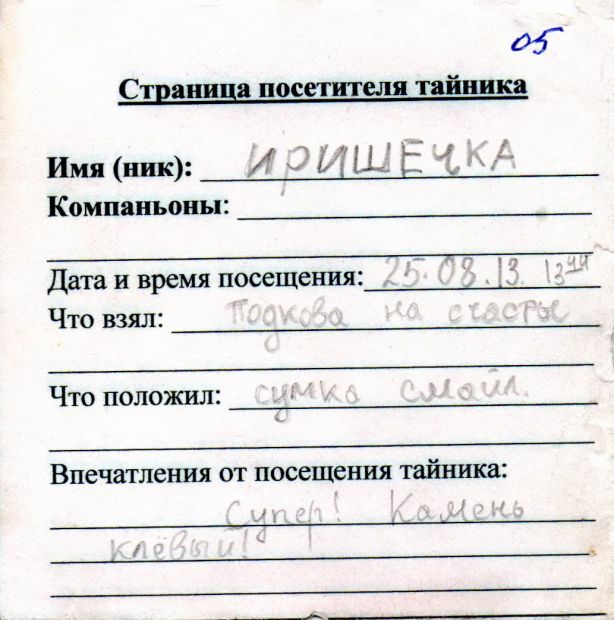 05
Страница посетителя тайника
Имя (ник): ИРИШЕЧКА
Компаньоны:
Дата и время посещения: 25.08.13. 13⁴⁴
Что взял: Подкова на счастье
Что положил: сумка смайл.
Впечатления от посещения тайника:
Супер! Камень
клёвый!